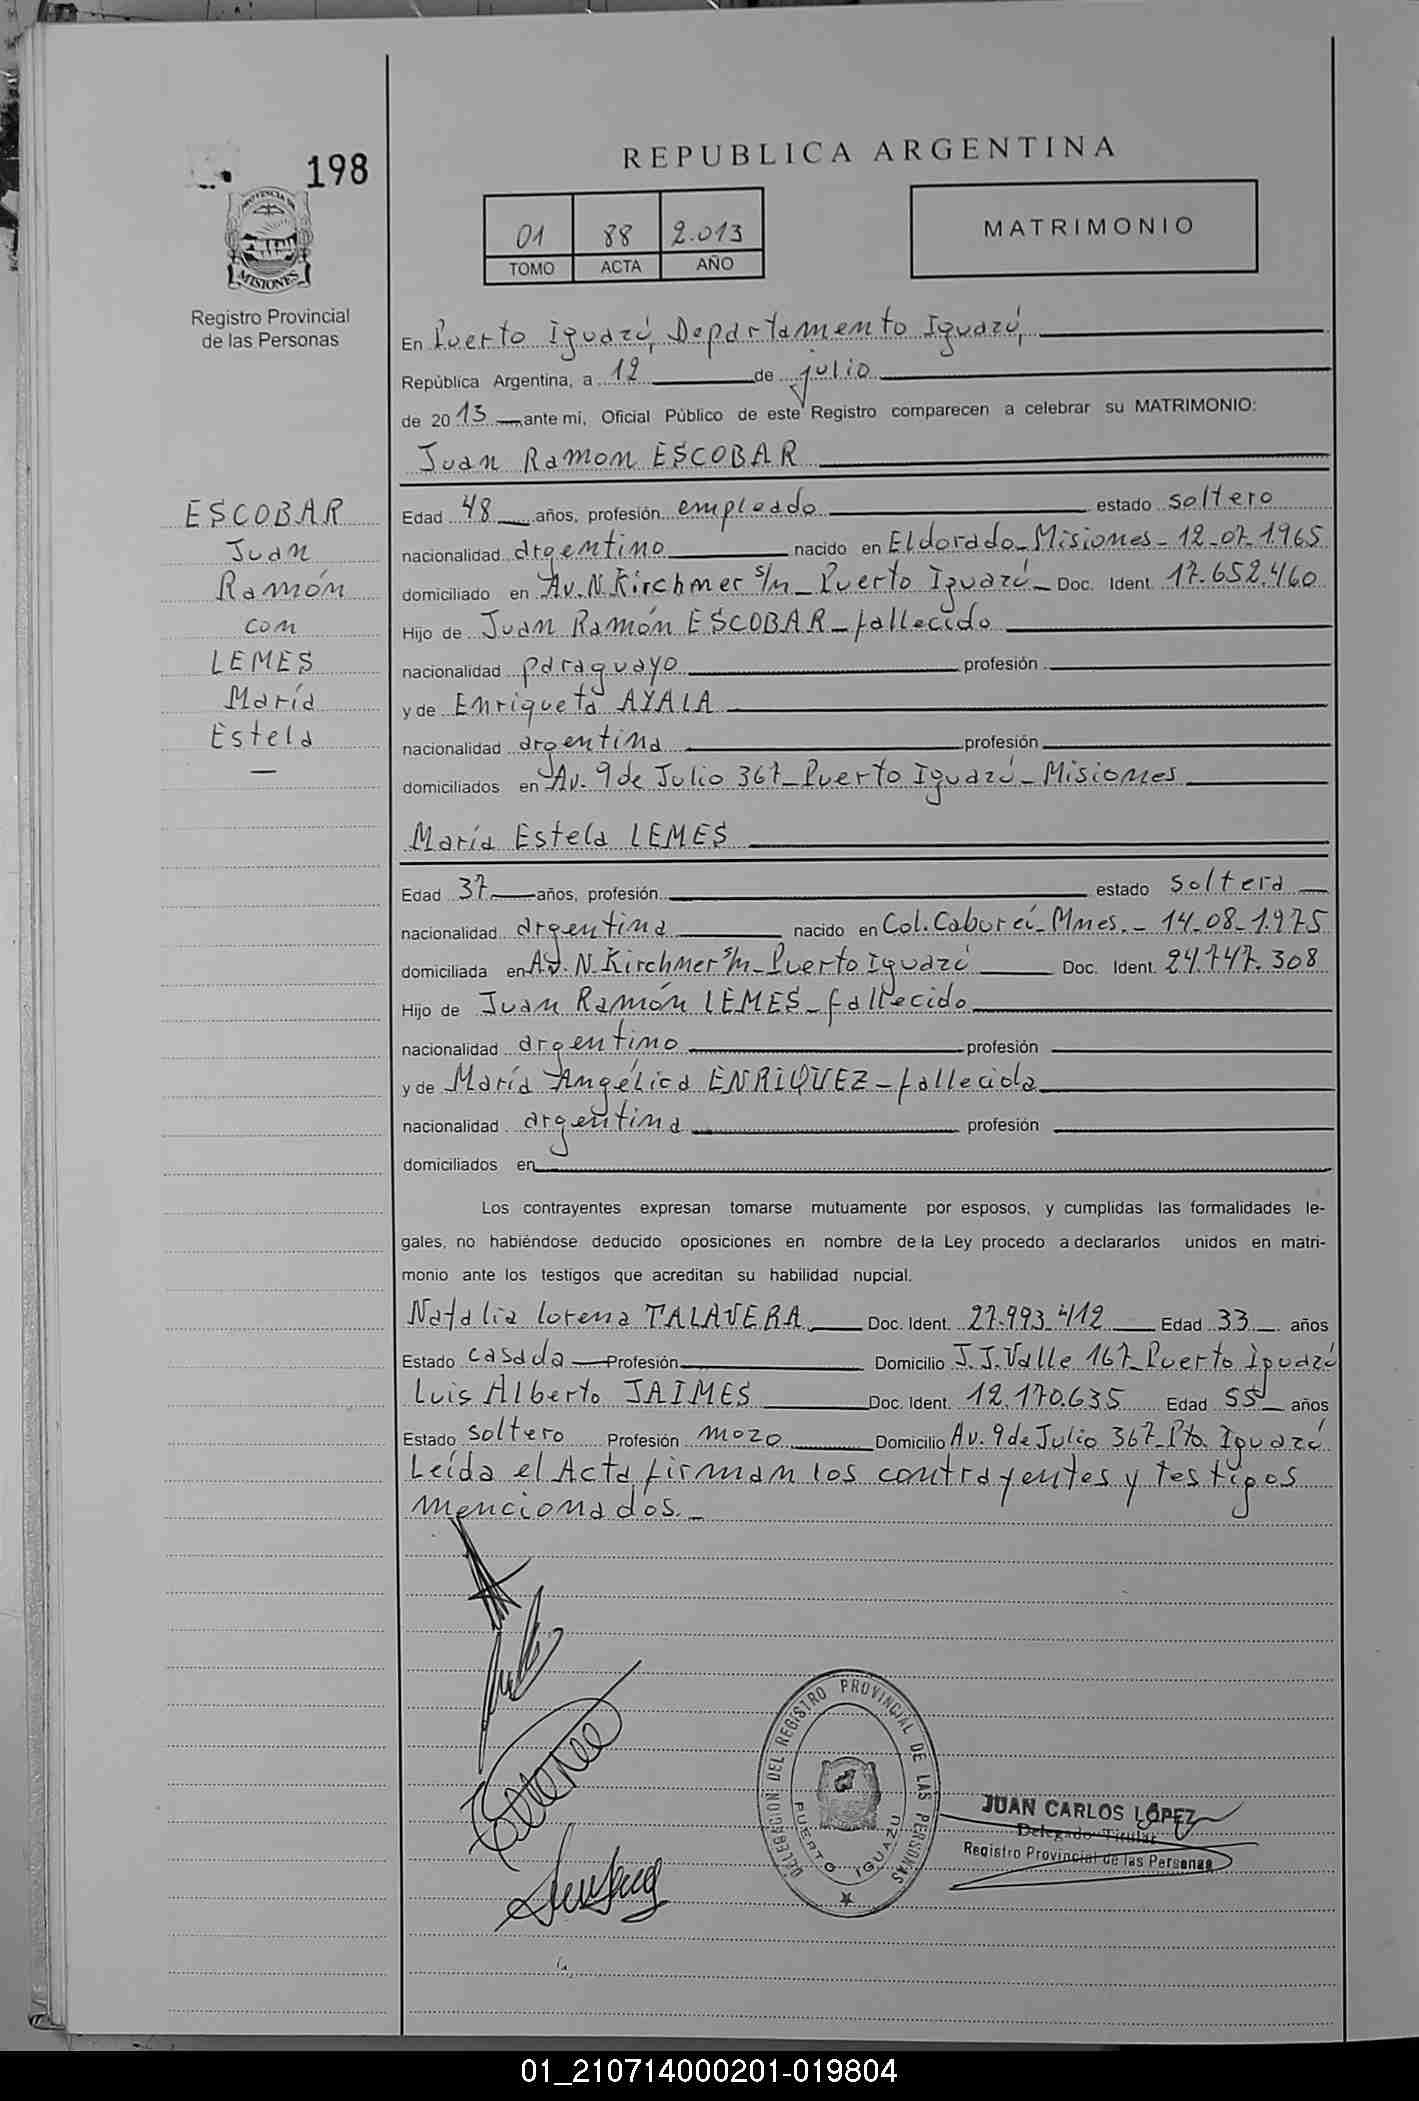 198
PROVINCIA DE
MISIONES
Registro Provincial
de las Personas
REPUBLICA ARGENTINA
01 88 2.013
TOMO ACTA AÑO
MATRIMONIO
En Puerto Iguazú, Departamento Iguazú,
República Argentina, a 12 de julio
de 2013 ante mi, Oficial Público de este Registro comparecen a celebrar su MATRIMONIO:
Juan Ramon ESCOBAR
ESCOBAR
Juan
Ramón
con
LEMES
María
Estela
Edad 48 años, profesión empleado estado soltero
nacionalidad argentino nacido en Eldorado - Misiones - 12-07-1965
domiciliado en Av. N. Kirchner s/n - Puerto Iguazú - Doc. Ident. 17.652.460
Hijo de Juan Ramón ESCOBAR - fallecido
nacionalidad paraguayo profesión
y de Enriqueta AYALA
nacionalidad argentina profesión
domiciliados en Av. 9 de Julio 367 - Puerto Iguazú - Misiones
María Estela LEMES
Edad 37 años, profesión estado soltera
nacionalidad argentina nacido en Col. Caburei - Mnes. - 14-08-1.975
domiciliada en Av. N. Kirchner s/n - Puerto Iguazú Doc. Ident. 24.747.308
Hijo de Juan Ramón LEMES - fallecido
nacionalidad argentino profesión
y de María Angélica ENRIQUEZ - fallecida
nacionalidad argentina profesión
domiciliados en
Los contrayentes expresan tomarse mutuamente por esposos, y cumplidas las formalidades le-
gales, no habiéndose deducido oposiciones en nombre de la Ley procedo a declararlos unidos en matri-
monio ante los testigos que acreditan su habilidad nupcial.
Natalia Lorena TALAVERA Doc. Ident. 27.993.412 Edad 33 años
Estado casada Profesión Domicilio J.J. Valle 167 - Puerto Iguazú
Luis Alberto JAIMES Doc. Ident. 12.170.635 Edad 55 años
Estado soltero Profesión mozo Domicilio Av. 9 de Julio 367 - Pto. Iguazú
Leída el Acta firman los contrayentes y testigos
mencionados. -
DELEGACION DEL REGISTRO PROVINCIAL DE LAS PERSONAS
PUERTO IGUAZU
JUAN CARLOS LÓPEZ
Delegado Titular
Registro Provincial de las Personas
01_210714000201-019804